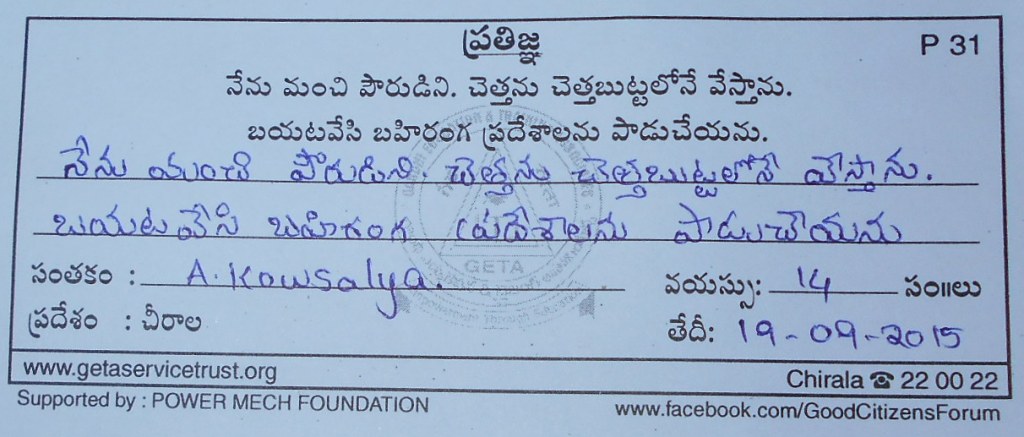 ప్రతిజ్ఞ
P 31
నేను మంచి పౌరుడిని. చెత్తను చెత్తబుట్టలోనే వేస్తాను.
బయటవేసి బహిరంగ ప్రదేశాలను పాడుచేయను.
నేను మంచి పౌరుడిని. చెత్తను చెత్తబుట్టలోనే వేస్తాను.
బయటవేసి బహిరంగ ప్రదేశాలను పాడుచేయను
సంతకం : A. Kowsalya. వయస్సు: 14 సం॥లు
ప్రదేశం : చీరాల తేదీ: 19-09-2015
GETA
www.getaservicetrust.org Chirala ☎ 22 00 22
Supported by : POWER MECH FOUNDATION www.facebook.com/GoodCitizensForum